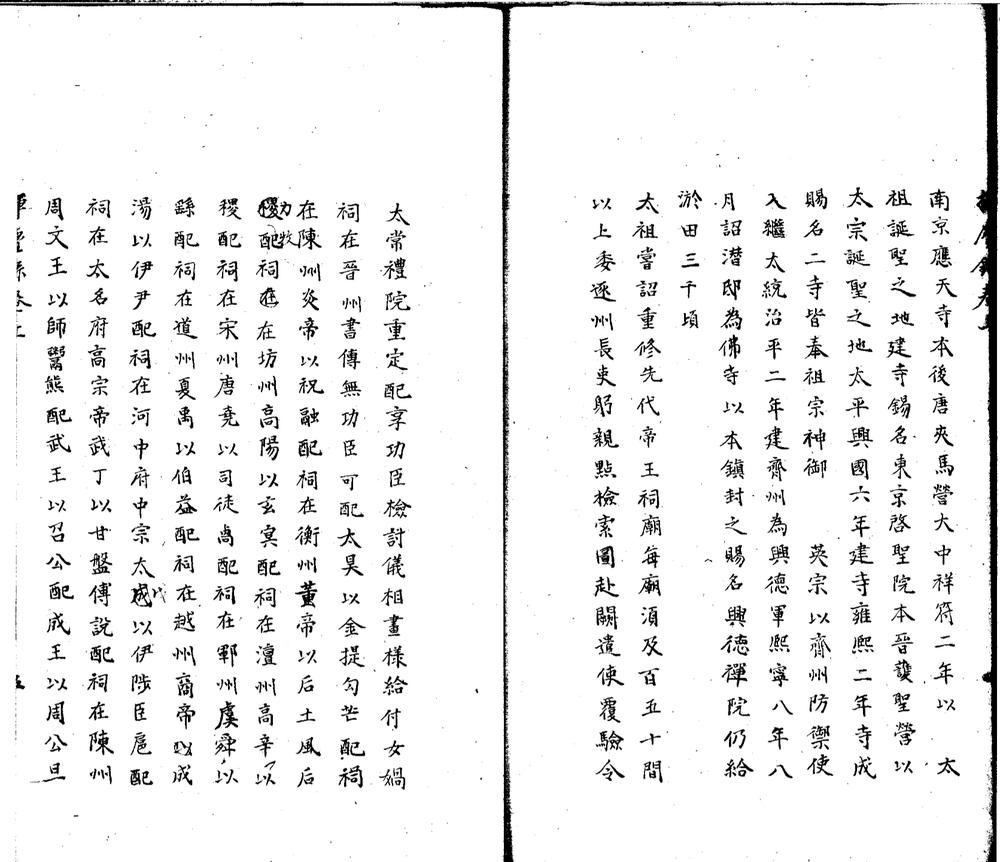 南京應天寺本後唐夾馬營大中祥符二年以 太
祖誕聖之地建寺錫名東京啓聖院本晉護聖營以
太宗誕聖之地太平興國六年建寺雍熙二年寺成
賜名二寺皆奉祖宗神御 英宗以齊州防禦使
入繼太統治平二年建齊州為興德軍熙寧八年八
月詔潛邸為佛寺以本鎮封之賜名興德禪院仍給
淤田三千頃
太祖嘗詔重修先代帝王祠廟每廟須及百五十間
以上委逐州長吏躬親點檢索圖赴闕遣使覆驗令
太常禮院重定配享功臣檢討儀相畫樣給付女媧
祠在晉州書傳無功臣可配太昊以金提勾芒配祠
在陳州炎帝以祝融配祠在衡州黃帝以后土風后
力牧配祠在坊州高陽以玄冥配祠在澶州高辛以
稷配祠在宋州唐堯以司徒卨配祠在鄆州虞舜以
繇配祠在道州夏禹以伯益配祠在越州商帝以成
湯以伊尹配祠在河中府中宗太戊以伊陟臣扈配
祠在太名府高宗帝武丁以甘盤傅說配祠在陳州
周文王以師鬻熊配武王以召公配成王以周公旦